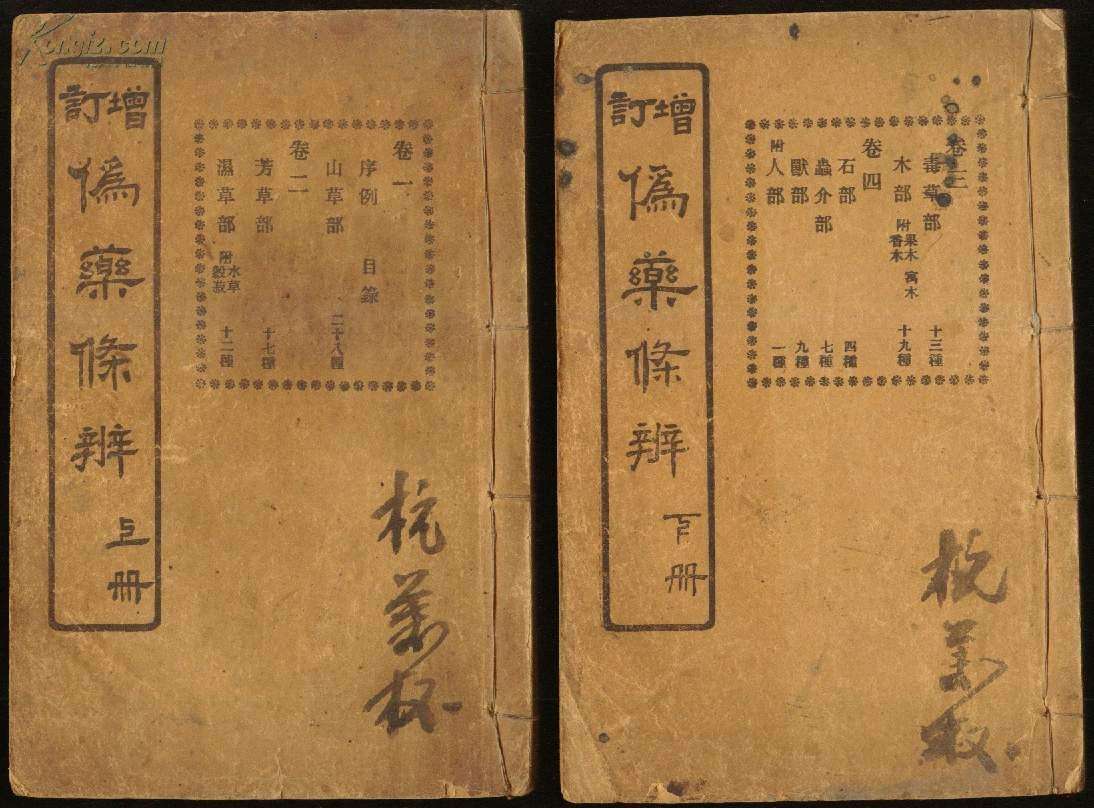 Kongfz.com
增訂
偽藥條辨
上冊
卷一
序例 目錄
山草部 二十八種
卷二
芳草部 十七種
濕草部 附水草穀菽 十二種
增訂
偽藥條辨
下冊
卷三
毒草部 十三種
木部 附果木 寓木 香木 十九種
卷四
石部 四種
蟲介部 七種
獸部 九種
附人部 一種